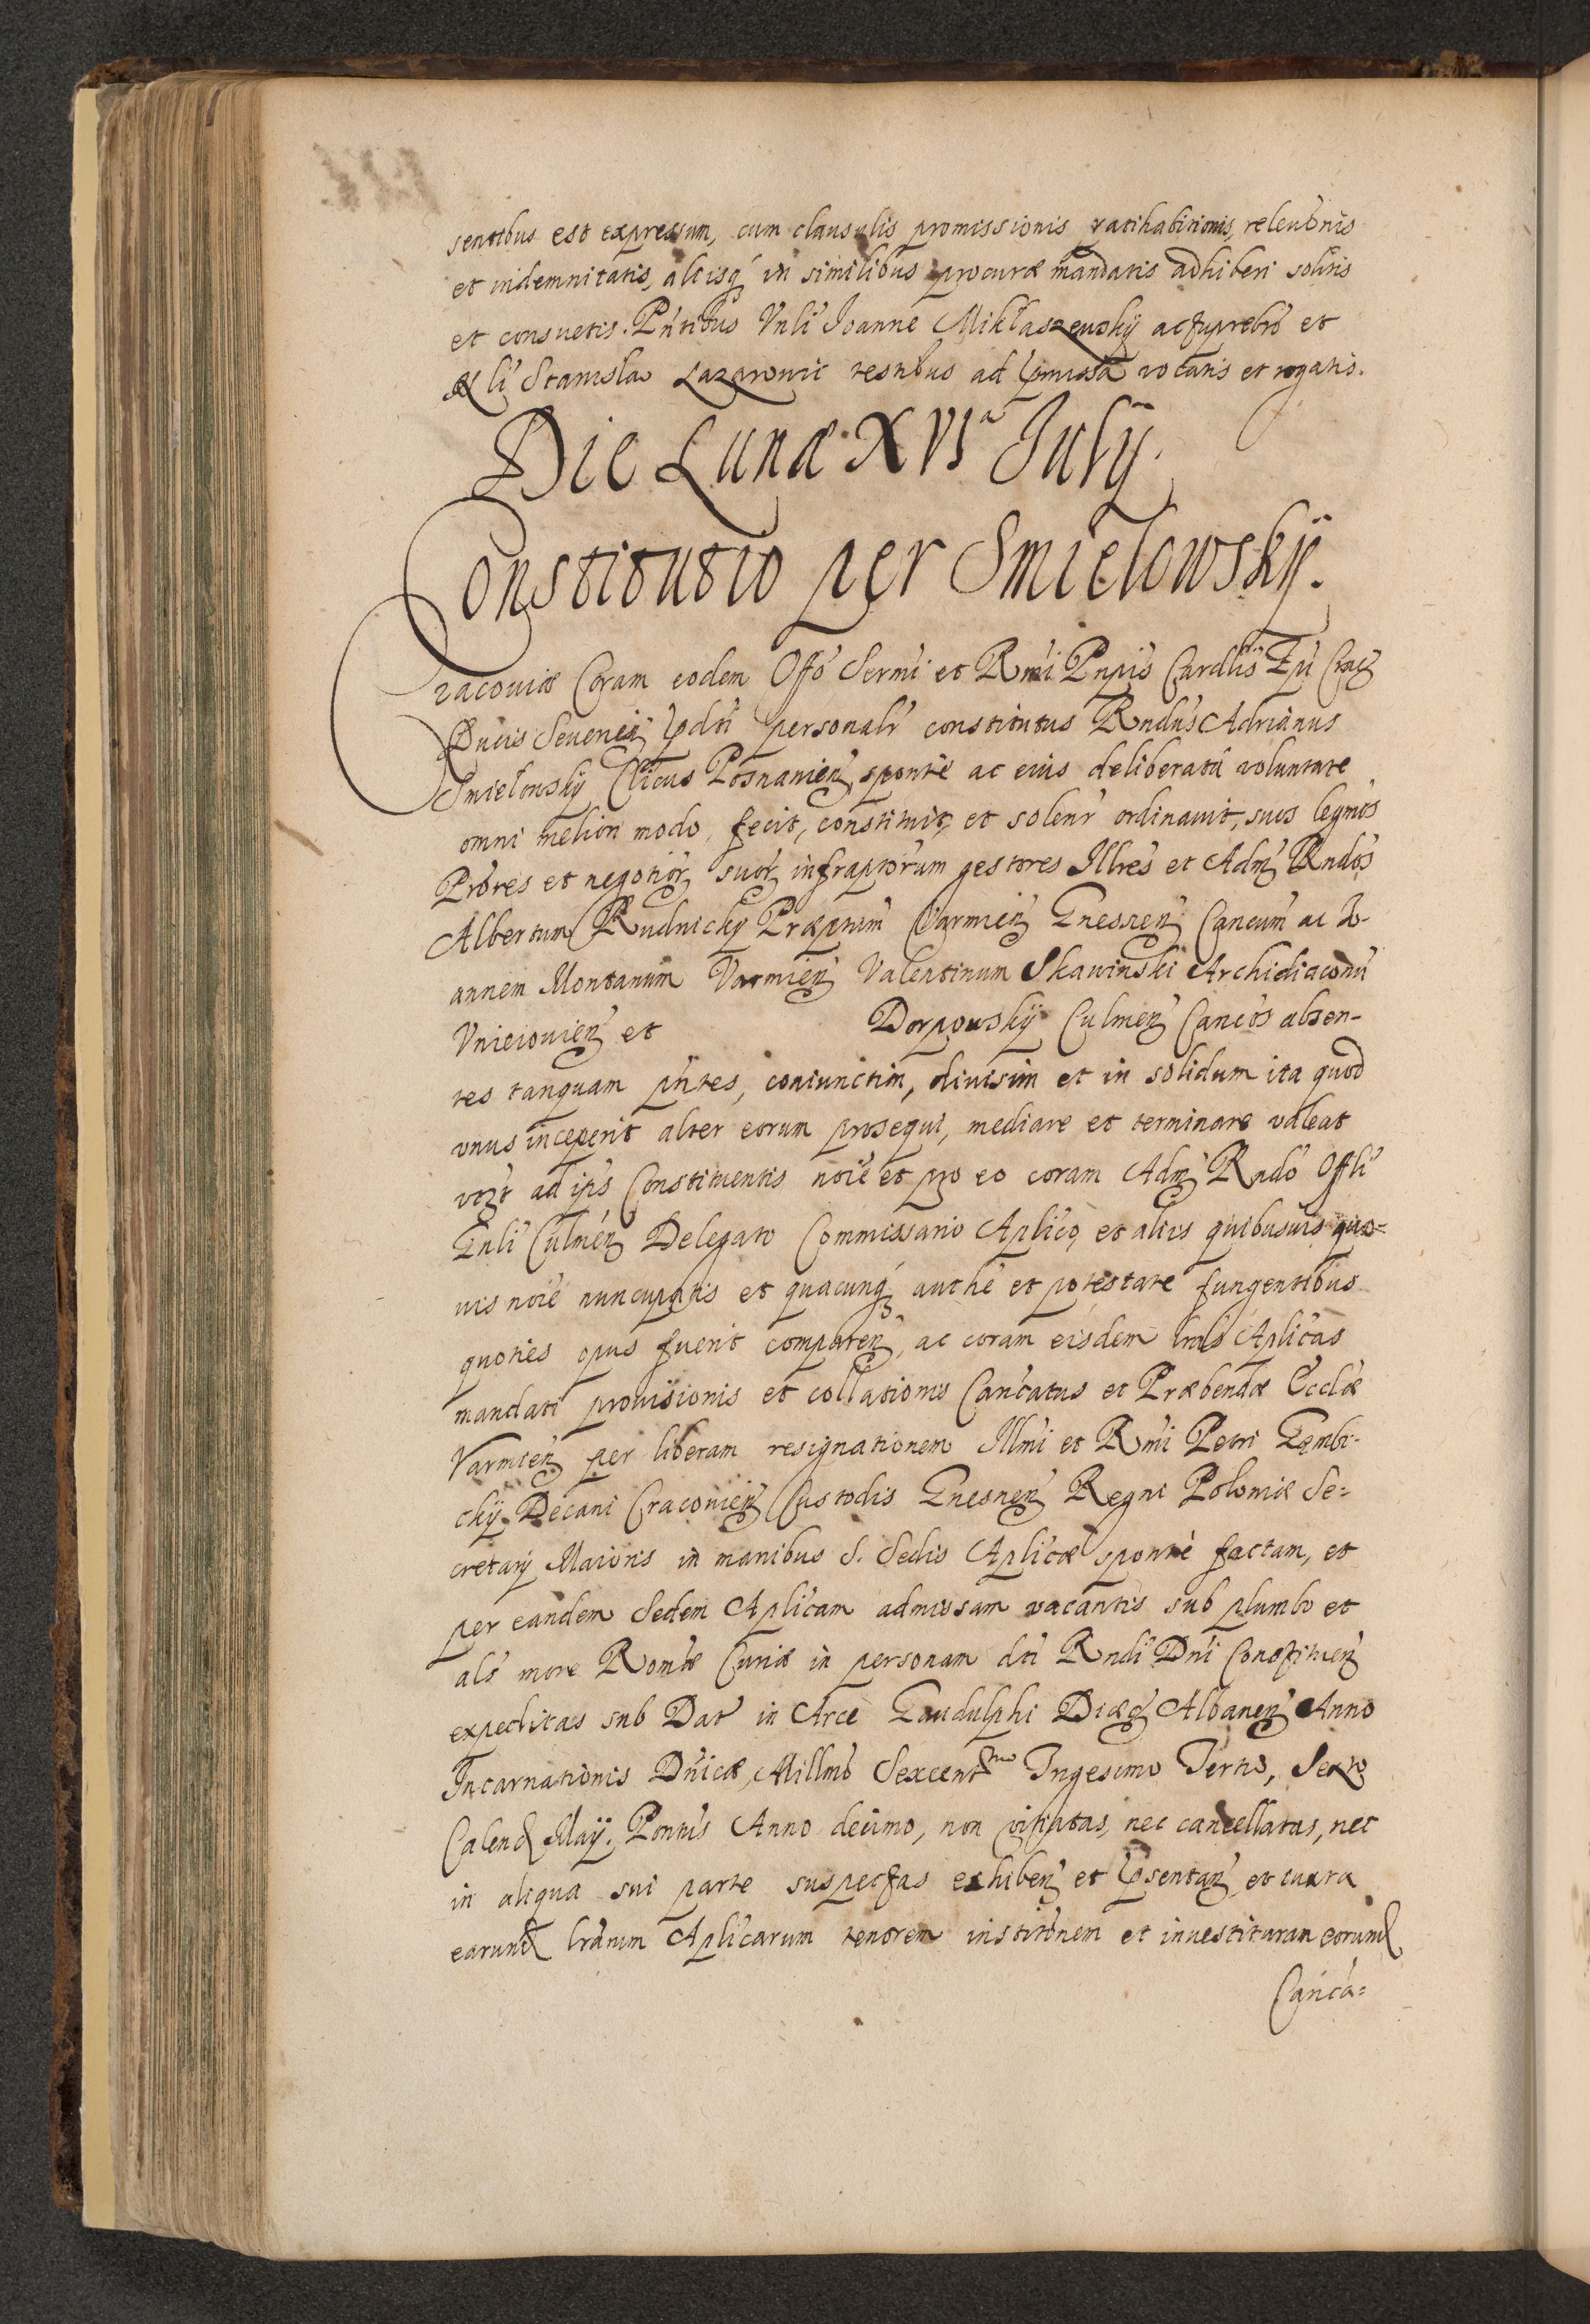 sentibus est expressum, cum clausulis promissionis ratihabitionis, releuõnis
et indemnitatis, aliisq́ in similibus procuræ mandatis adhiberi solitis
et consuetis. Pñtibus Vnli Joanne Miklaszewskÿ et
Stanislao Lazarowic testibus ad p̃missa vocatis et rogatis.
Die Lunæ XVIª Julÿ.
Constitutio per Smielowskÿ.
Cracouiæ Coram eodem Offo Sermi et Rmi Pnpis Cardlis Epi Crac
Ducis Seuerien p̃dti personalr constitutus Rndus Adrianus
Smielowskÿ Clicus Posnanien, sponte ac eius deliberata voluntate
omni meliori modo, fecit, constituit, et solenr ordinauit, suos legnos
Prores et negotior suor infraptorum gestores Illres et Adm Rndos
Albertum Rudnickÿ Præptum Varmien Gnesnen Cancum ac Jo-
annem Montanum Varmien Valentinum Skawinski Archidiaconu
Vnieiouien et Dorpouskÿ Culmen Cancos absen-
tes tanquam pñtes, coniunctim, diuisim et in solidum ita quod
vnus inceperit alter eorum prosequi, mediare et terminare valeat
vidt ad ips Constituentis noie et pro eo coram Adm Rndo Offli
Gnli Culmen Delegato Commissario Aplico, et aliis quibusuis quo=
uis noie nuncupatis et quacunq́ authe et potestate fungentibus
quoties opus fuerit comparen, ac coram eisdem lras Aplicas
mandati prouisionis et collationis Cancatus et Præbendæ Ecclæ
Varmien per liberam resignationem Illmi et Rmi Petri Gembi-
ckÿ Decani Cracouien Custodis Gnesnen Regni Poloniæ Se=
cretarÿ Maioris in manibus S. Sedis Aplicæ sponte factam, et
per eandem Sedem Aplicam admissam vacantis sub plumbo et
als more Romæ Curiæ in personam dti Rndi Dni Constituen
expeditas sub Dat in Arce Gandulphi Diæc Albanen Anno
Incarnationis Dnicæ, Millmo Sexcentmo Trigesimo Tertio, Sexto
Calend Maÿ. Pontus Anno decimo, non vitiatas, nec cancellatas, nec
in aliqua sui parte suspectas exhiben et p̃sentan, et iuxta
earund lrarum Aplicarum tenorem institõnem et inuestituram eorund
Canca=